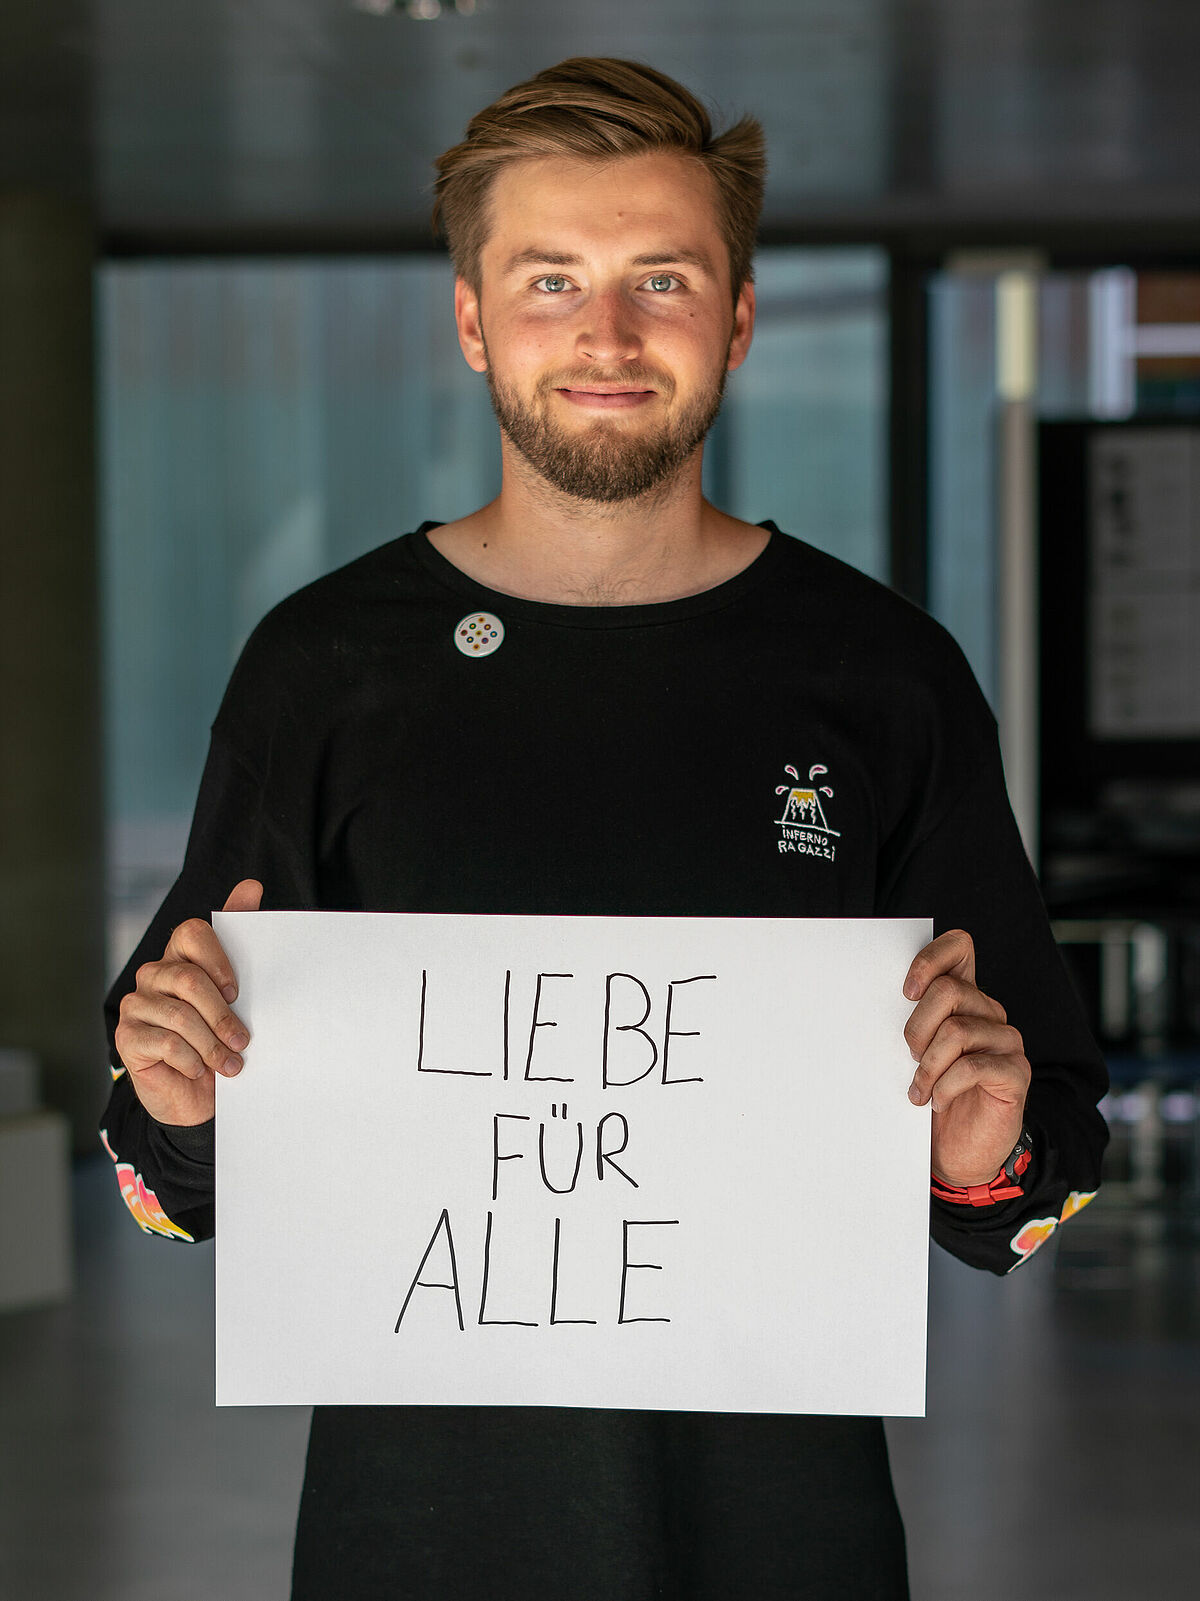 iNFERNO
RAGAZZi
LIEBE
FÜR
ALLE